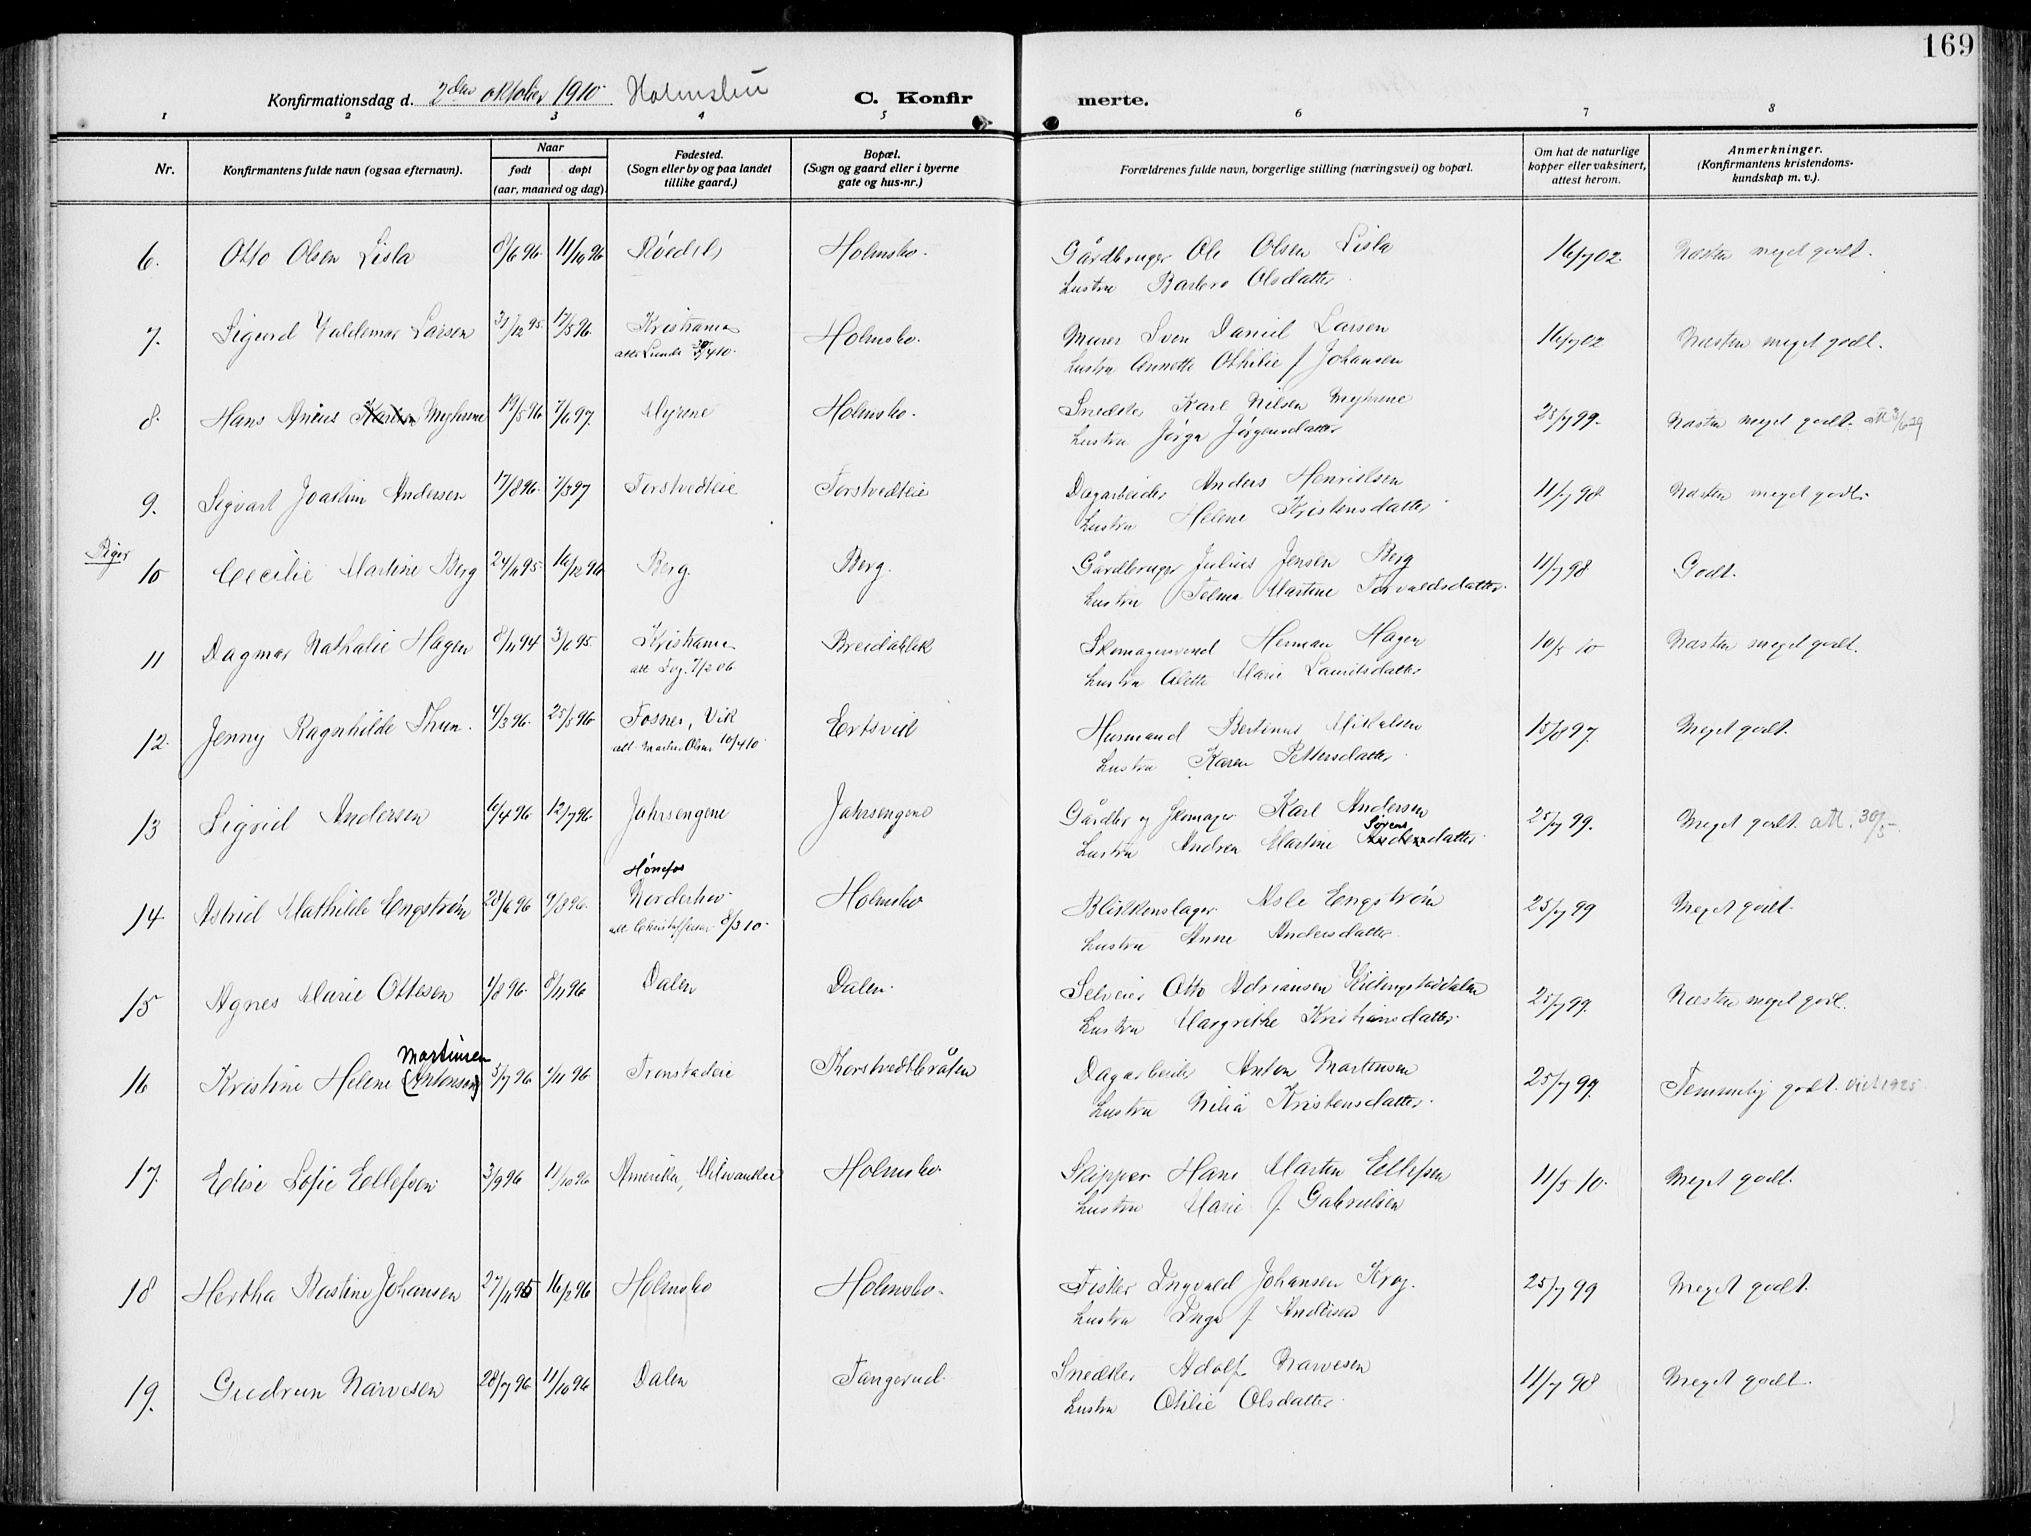 169
Konfirmationsdag d. 2den oktober 1910 Holmsbu C. Konfirmerte.
1 2 3 4 5 6 7 8
Nr. Konfirmantens fulde navn (ogsaa efternavn). Naar født døpt (aar, maaned og dag). Fødested. (Sogn eller by og paa landet tillike gaard.) Bopæl. (Sogn og gaard eller i byerne gate og hus-nr.) Forældrenes fulde navn, borgerlige stilling (næringsvei) og bopæl. Om hat de naturlige kopper eller vaksinert, attest herom. Anmerkninger. (Konfirmantens kristendomskundskap m. v.).
6. Otto Olsen Lisla 8/6 96. 11/10 96 Rødtels Holmsbo. Gårdbruger Ole Olsen Lisla 16/7 02. Næsten meget godt.
Hustru Barbro Olsdatter
7. Sigurd Valdemar Larsen 31/12 95. 17/5 96. Kristiania Holmsbo. Murer Sven Daniel Larsen 16/7 02 Næsten meget godt.
att Lunde 30/4 10. Hustru Annette Othilie f Johansen
8. Hans Anius Myhrene 19/5 96 7/6 97. Myrene Holmsbo. Snedker Karl Nilsen Myhrene 25/7 99. Næsten meget godt. att 3/6 29
Hustru Jørga Jørgensdatter
9. Sigvart Joakim Andersen 17/8 96. 7/3 97 Torstvedteie Torstvedteie Dagarbeider Anders Henriksen 11/7 98 Næsten meget godt.
Hustru Helene Kristensdatter.
Piger
10 Cecilie Martine Berg 24/11 95. 16/12 96 Berg. Berg. Gårdbruger Julius Jensen Berg 11/7 98 Godt.
Hustru Telma Martine Torvaldsdatter.
11 Dagmar Nathalie Hagen 8/11 94 3/6 95. Kristiania Breidablik Skomagersvend Herman Hagen 10/5 10 Næsten meget godt.
att Fog. 7/2 06 Hustru Alette Marie Lauritsdatter
12. Jenny Ragnhilde Thun. 4/3 96. 25/5 96. Fosnes, Vik Ertsvik Husmand Bertinus Mikalsen 15/8 97. Meget godt.
att. Martin Olsen 10/4 10. Hustru Karen Pettersdatter.
13 Sigrid Andersen 6/4 96 12/7 96. Jahrsengene Jahrsengene Gårdbr og Skomager Karl Andersen 25/7 99. Meget godt. att. 30/5
Hustru Andrea Martine Sørensdatter.
Hønefos
14 Astrid Mathilde Engstrøm 28/6 96 9/8 96. Norderhov Holmsbo Blikkenslager Asle Engstrøm 25/7 99 Meget godt.
att Christoffersen 8/3 10. Hustru Anne Andersdatter.
15 Agnes Marie Ottesen 1/8 96. 8/11 96 Dalen Dalen. Selveier Otto Adriansen 25/7 99. Næsten meget godt.
Hustru Margrethe Kristiansdatter
Martinsen
16 Kristine Helene (Antonsen) 5/7 96 1/11 96 Tronstadeie Thorstvedtbråten Dagarbeider Anton Martinsen 25/7 99. Temmelig godt. viet 1925
Hustru Nilia Kristensdatter.
17. Elise Sofie Ellefsen 3/9 96 11/10 96 Amerika, Milwaukee Holmsbo. Skipper Hans Marten Ellefsen 11/5 10. Meget godt.
Hustru Marie f. Gabrielsen
18 Hertha Bastine Johansen 27/11 95 16/2 96 Holmsbo Holmsbo. Fisker Ingvald Johansen Krog. 25/7 99 Meget godt.
Hustru Inga f. Andersen
19. Gudrun Narvesen 28/7 96 11/10 96 Dalen Tangerud. Snedker Adolf Narvesen 11/7 98 Meget godt.
Hustru Othilie Olsdatter.